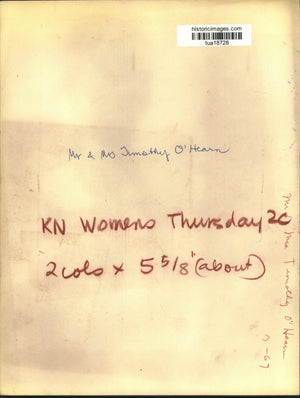 historicimages.com
tua18728
Mr & Mrs Timothy O'Hearn
KN Womens Thursday 2C
2 cols x 5 5/8" (about)
Mr & Mrs Timothy O'Hearn
7-67